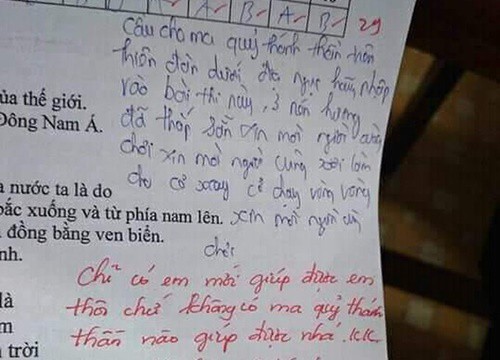 A A B A B 29
Cầu cho ma quỷ thánh thần trên
thiên đàn dưới địa ngục hãy nhập
vào bài thi này, 3 nén hương
đã thắp sẵn xin mời người cùng
chơi xin mời người cùng xơi làm
cho cơ xoay cỏ chạy vòm vòng
xin mời người cùng
chơi
ủa thế giới.
Đông Nam Á.
a nước ta là do
bắc xuống và từ phía nam lên.
đồng bằng ven biển.
nh.
là
m
trời
Chỉ có em mới giúp được em
thôi chứ không có ma quỷ thánh
thần nào giúp được nhá. KK